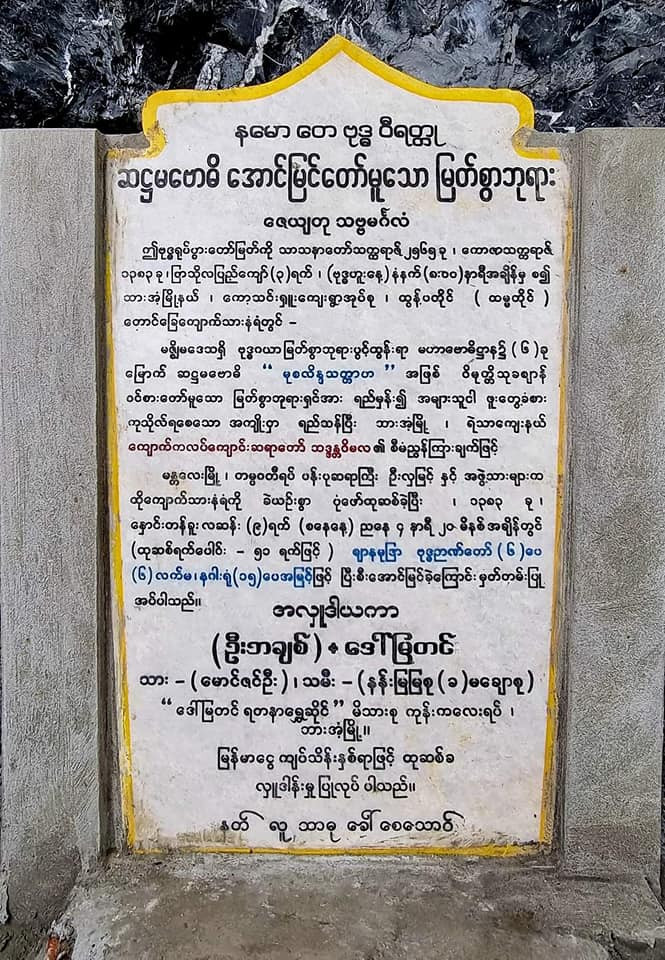 နမော တေ ဗုဒ္ဓ ဝီရတ္ထု
ဆဋ္ဌမဗောဓိ အောင်မြင်တော်မူသော မြတ်စွာဘုရား
ဇေယျတု သဗ္ဗမင်္ဂလံ
ဤဗုဒ္ဓရုပ်ပွားတော်မြတ်ကို သာသနာတော်သက္ကရာဇ် ၂၅၆၅ ခု ၊ ကောဇာသက္ကရာဇ်
၁၃၈၃ ခု ၊ ပြာသိုလပြည့်ကျော် (၃) ရက် ၊ (ဗုဒ္ဓဟူးနေ့) နံနက် (၈:၀၀) နာရီအချိန်မှ စ၍
ဘားအံ့မြို့နယ် ၊ ကော့သင်းရှူးကျေးရွာအုပ်စု ၊ ထွန့်ပတိုင် ( ထမ္မတိုင် )
တောင်ခြေကျောက်သားနံရံတွင် –
မဇ္ဈိမဒေသရှိ ဗုဒ္ဓဂယာမြတ်စွာဘုရားပွင့်ထွန်းရာ မဟာဗောဓိဌာန၌ (၆) ခု
မြောက် ဆဋ္ဌမဗောဓိ “ မုစလိန္ဒသတ္တာဟ ” အဖြစ် ဝိမုတ္တိသုခဈာန်
ဝင်စားတော်မူသော မြတ်စွာဘုရားရှင်အား ရည်မှန်း၍ အများသူငါ ဖူးတွေ့ခံစား
ကုသိုလ်ရစေသော အကျိုးငှာ ရည်သန်ပြီး ဘားအံ့မြို့ ၊ ရဲသာကျေးနယ်
ကျောက်ကလပ်ကျောင်းဆရာတော် ဘဒ္ဒန္တဝိမလ ၏ စီမံညွှန်ကြားချက်ဖြင့်
မန္တလေးမြို့ ၊ တမ္ပဝတီရပ် ပန်းပုဆရာကြီး ဦးလှမြင့် နှင့် အဖွဲ့သားများက
ထိုကျောက်သားနံရံကို ခဲယဉ်းစွာ ပုံဖော်ထုဆစ်ခဲ့ပြီး ၊ ၁၃၈၃ ခု ၊
နှောင်းတန်ခူးလဆန်း (၉) ရက် (စနေနေ့) ညနေ ၄ နာရီ ၂၀ မိနစ် အချိန်တွင်
(ထုဆစ်ရက်ပေါင်း – ၅၁ ရက်ဖြင့် ) ဈာနမုဒြာ ဗုဒ္ဓဉာဏ်တော် (၆) ပေ
(၆) လက်မ ၊ နဂါးရုံ (၁၅) ပေအမြင့်ဖြင့် ပြီးစီးအောင်မြင်ခဲ့ကြောင်း မှတ်တမ်းပြု
အပ်ပါသည်။
အလှူဒါယကာ
(ဦးဘချစ်) + ဒေါ်မြတင်
သား – (မောင်ဇင်ဦး) ၊ သမီး – (နန်းမြမြစု (ခ) မချောစု)
“ ဒေါ်မြတင် ရတနာရွှေဆိုင် ” မိသားစု ကုန်းကလေးရပ် ၊
ဘားအံ့မြို့။
မြန်မာငွေ ကျပ်သိန်းနှစ်ရာဖြင့် ထုဆစ်ခ
လှူဒါန်းမှု ပြုလုပ် ပါသည်။
နတ် လူ သာဓု ခေါ် စေသောဝ်